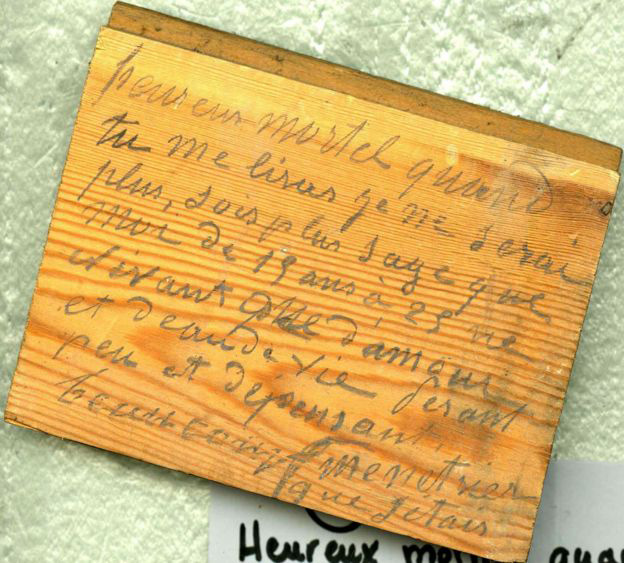 heureux mortel quand
tu me liras je ne serai
plus, sois plus sage que
moi de 19 ans à 25 ne
vivant que d'amour
et d'eau de vie fesant
peu et depensant
beaucoup menetrier
que j'étais
Heureux mortel quand